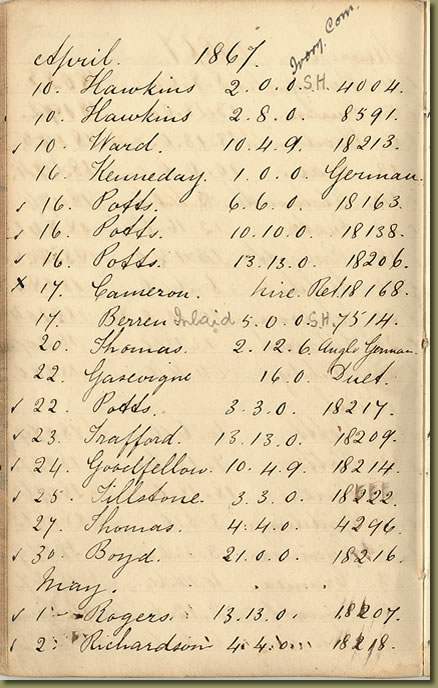 Ivory Com.
April. 1867.
10. Hawkins 2.0.0. S.H. 4004.
10. Hawkins 2.8.0. 8591.
✓ 10. Ward. 10.4.9. 18213.
16. Kenneday. 1.0.0. German.
✓ 16. Potts. 6.6.0. 18163.
✓ 16. Potts. 10.10.0. 18138.
✓ 16. Potts. 13.13.0. 18206.
x 17. Cameron. hire. Ret. 18168.
17. Berren Inlaid 5.0.0. S.H. 7514.
20. Thomas. 2.12.6. Anglo German.
22. Gascvigne 16.0. Duet.
✓ 22. Potts. 3.3.0. 18217.
✓ 23. Trafford. 13.13.0. 18209.
✓ 24. Goodfellow. 10.4.9. 18214.
✓ 25. Tillstone. 3.3.0. 18222.
27. Thomas. 4.4.0. 4296.
✓ 30. Boyd. 21.0.0. 18216.
May.
✓ 1. Rogers. 13.13.0. 18207.
✓ 2. Richardson 4.4.0. 18218.